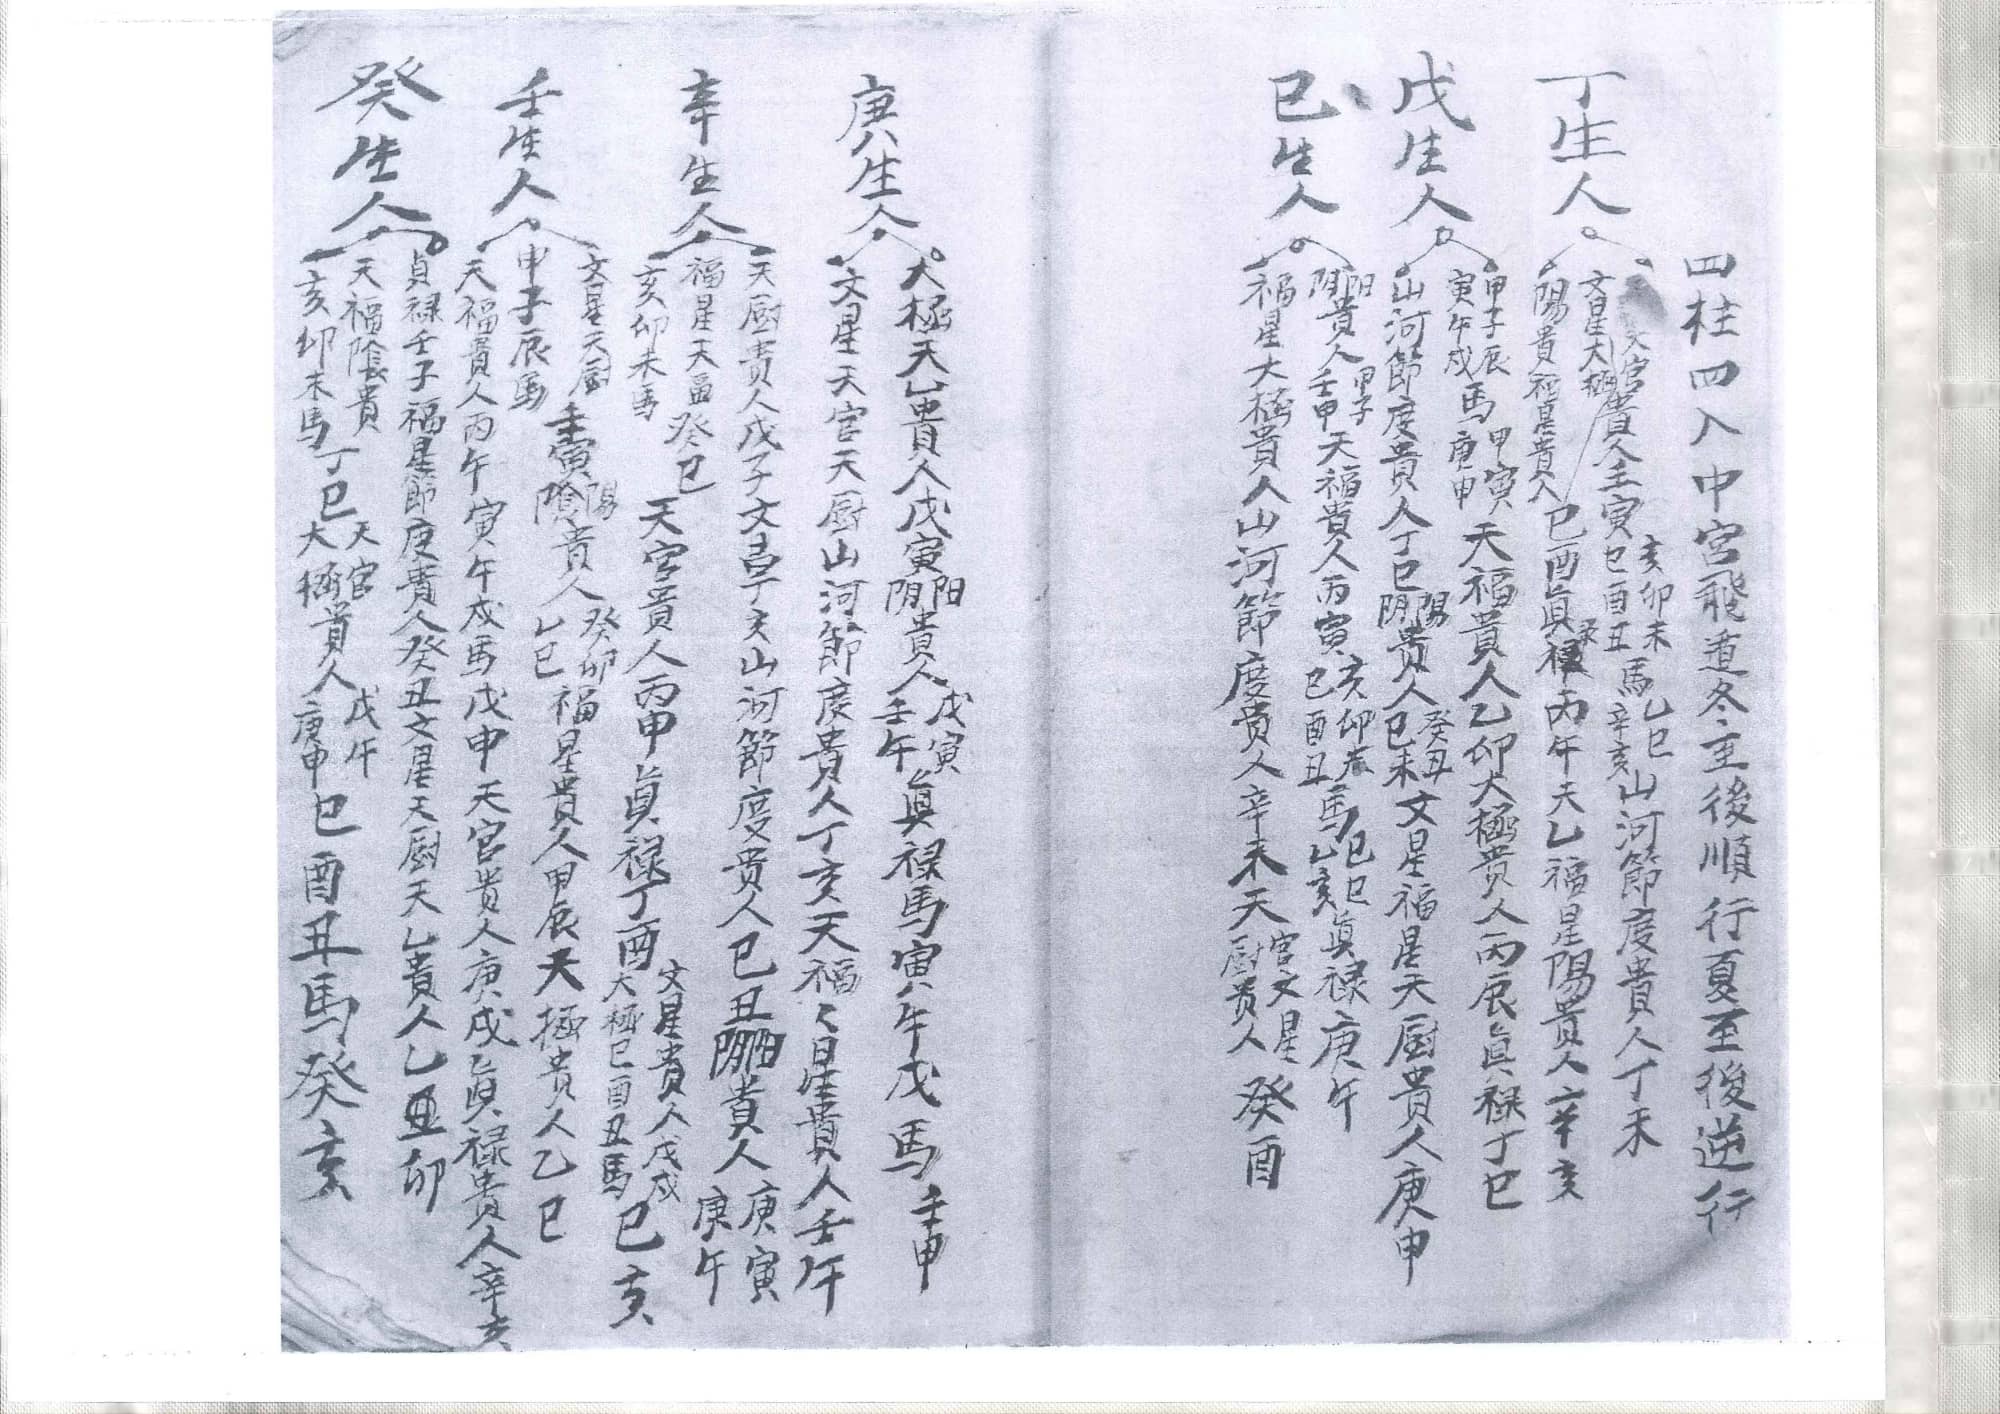 四柱四入中宮飛遁冬主後順行夏至後逆行
丁生人
天官貴人壬寅 亥卯未 巳酉丑 馬 乙巳 辛亥 山河節度貴人丁未
文星大極
陽貴福星貴人 巳酉眞禄丙午天乙福星陽貴人辛亥
戊生人
甲子辰 寅午戌 馬 甲寅 庚申 天福貴人乙卯大極貴人丙辰眞禄丁巳
山河節度貴人丁巳 陽 阴 貴人 癸丑 已未 文星福星天厨貴人庚申
已生人
阳 阴 貴人 甲子 壬申 天福貴人丙寅 亥卯 巳酉丑 馬 已巳 乙亥 眞禄庚午
福星大極貴人山河節度貴人辛未天 官文星 厨貴人 癸酉
庚生人
大極天乙貴人戊寅 阳 阴 貴人 戊寅 壬午 眞禄馬寅午戊馬壬申
文星天官天厨山河節度貴人丁亥天福〻星貴人壬午
辛生人
天厨貴人戊子文昌丁亥山河節度貴人已丑 阳 阴 貴人 庚寅 庚午
福星天畐 癸巳 天官貴人丙申眞禄丁酉 文星貴人戊戌
亥卯未馬 大極巳酉丑馬 已亥
壬生人
文星天厨 壬寅 陽 陰 貴人 癸卯 乙巳 福星貴人甲辰天極貴人乙巳
申子辰馬
天福貴人丙午寅午戌馬戊申天官貴人庚戌眞禄貴人辛亥
癸生人
貞禄壬子福星節度貴人癸丑文星天厨天乙貴人乙丑卯
天福陰貴 丁巳 天官 大極 貴人 戊午 庚申 巳酉丑馬癸亥
亥卯未馬